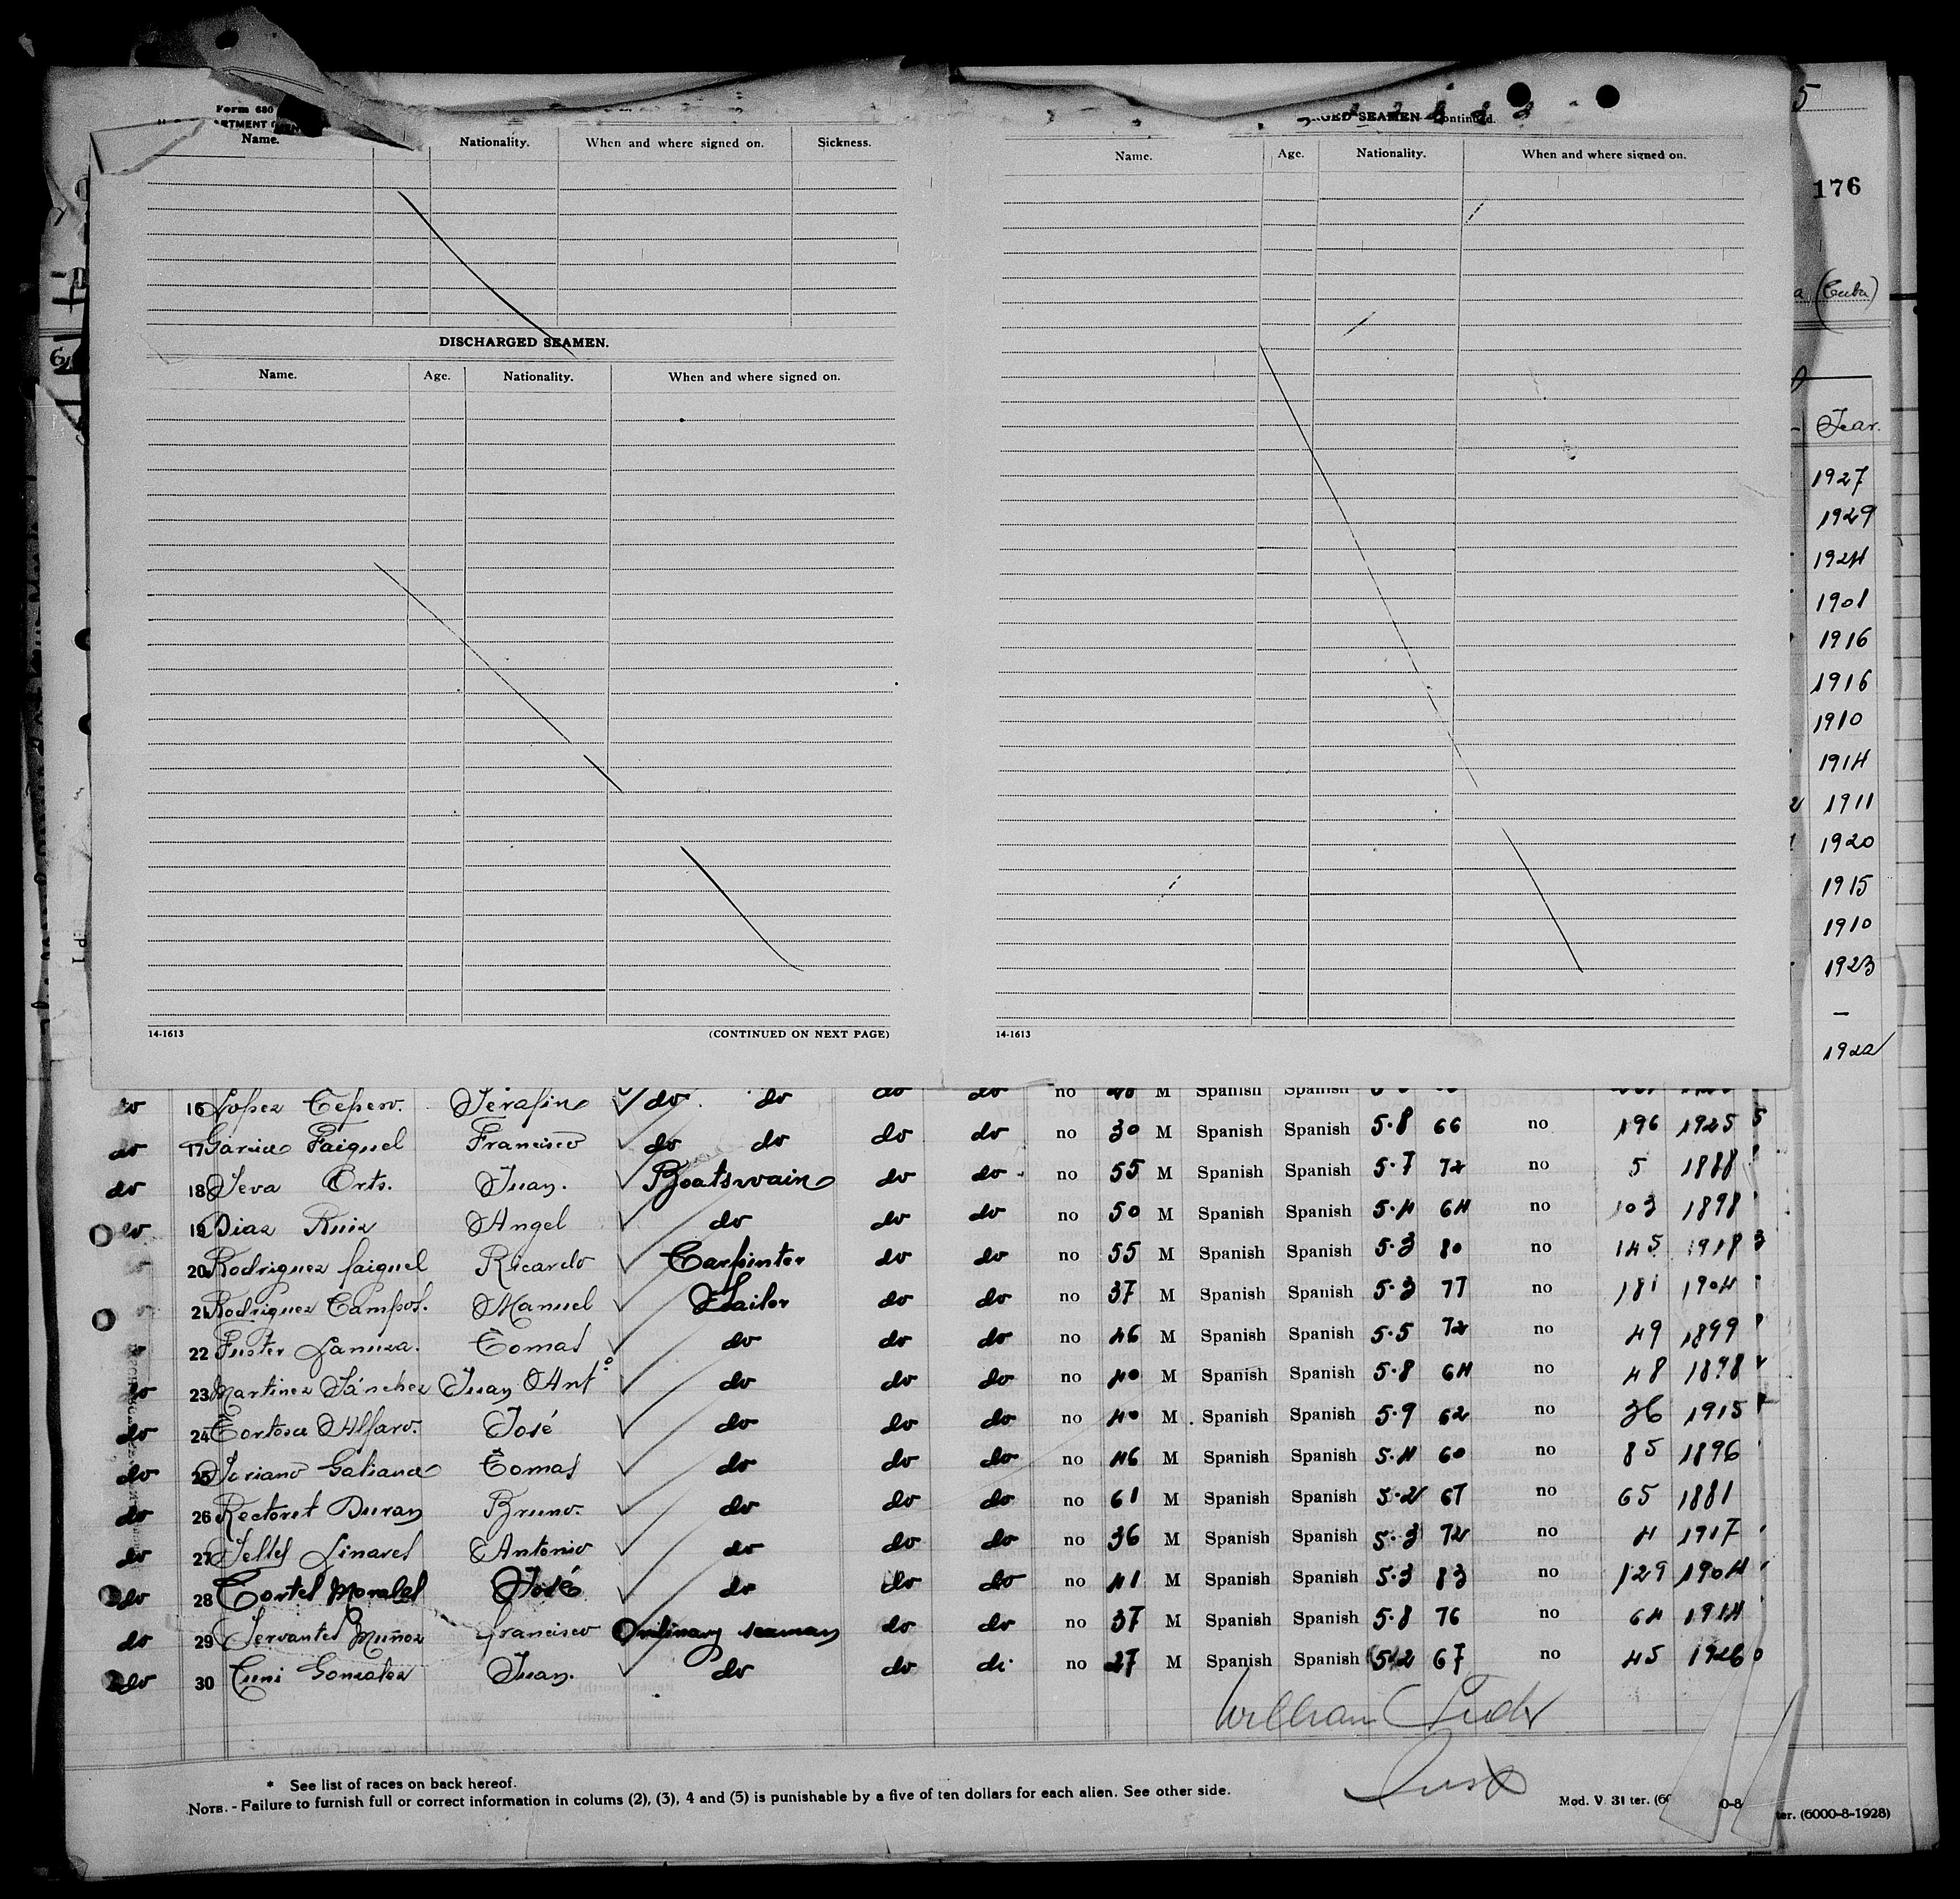 Form 680
Name. Nationality. When and where signed on. Sickness.
DISCHARGED SEAMEN.
Name. Age. Nationality. When and where signed on.
14-1613 (CONTINUED ON NEXT PAGE)
SEAMEN Continued.
Name. Age. Nationality. When and where signed on.
14-1613
5
176
(Cuba)
Year.
1927
1929
1924
1901
1916
1916
1910
1914
1911
1920
1915
1910
1923
-
1922
do 16 Lopez Cepero. Serafin do do do do no 40 M Spanish Spanish
do 17 Garcia Faiguel Francisco do do do do no 30 M Spanish Spanish 5·8 66 no 196 1925 5
do 18 Seva Orts. Juan. Boatswain do do no 55 M Spanish Spanish 5·7 72 no 5 1888
do 19 Diaz Ruiz Angel do do do no 50 M Spanish Spanish 5·4 64 no 103 1898
20 Rodriguez faiguel Ricardo Carpinter do do no 55 M Spanish Spanish 5·3 80 no 145 1918 3
21 Rodriguez Campos. Manuel Sailor do do no 37 M Spanish Spanish 5·3 77 no 181 1904
22 Fuster Lanuza. Tomas do do do no 46 M Spanish Spanish 5·5 72 no 49 1899
do 23 Martinez Sánchez Juan Antº do do do no 40 M Spanish Spanish 5·8 64 no 48 1898
do 24 Tortosa Alfaro. José do do do no 40 M Spanish Spanish 5·9 62 no 36 1915
do 25 Soriano Galiana Tomas do do do no 46 M Spanish Spanish 5·4 60 no 85 1896
do 26 Rectoret Duran Bruno. do do do no 61 M Spanish Spanish 5·2 67 no 65 1881
do 27 Selles Linares Antonio do do do no 36 M Spanish Spanish 5·3 72 no 4 1917
do 28 Cortes Morales José do do do no 41 M Spanish Spanish 5·3 83 no 129 1904
do 29 Servantes Muñoz francisco Ordinary seaman do do no 37 M Spanish Spanish 5·8 76 no 64 1914
do 30 Cuni Gonzalez Juan. do do di· no 27 M Spanish Spanish 5·2 67 no 45 1926 0
William
* See list of races on back hereof.
NOTE. - Failure to furnish full or correct information in colums (2), (3), 4 and (5) is punishable by a five of ten dollars for each alien. See other side.
Mod. V. 31 ter. (60 0-8 ter. (6000-8-1928)